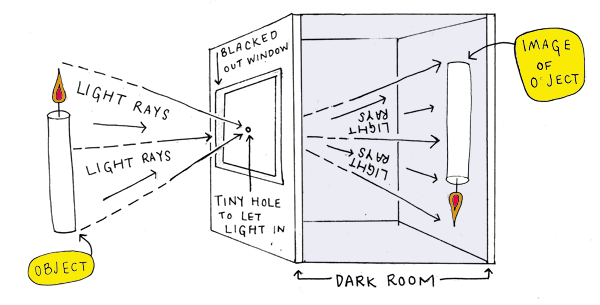 LIGHT RAYS
LIGHT RAYS
OBJECT
BLACKED
OUT WINDOW
TINY HOLE
TO LET
LIGHT IN
LIGHT
RAYS
LIGHT
RAYS
IMAGE
OF
O'JECT
DARK ROOM